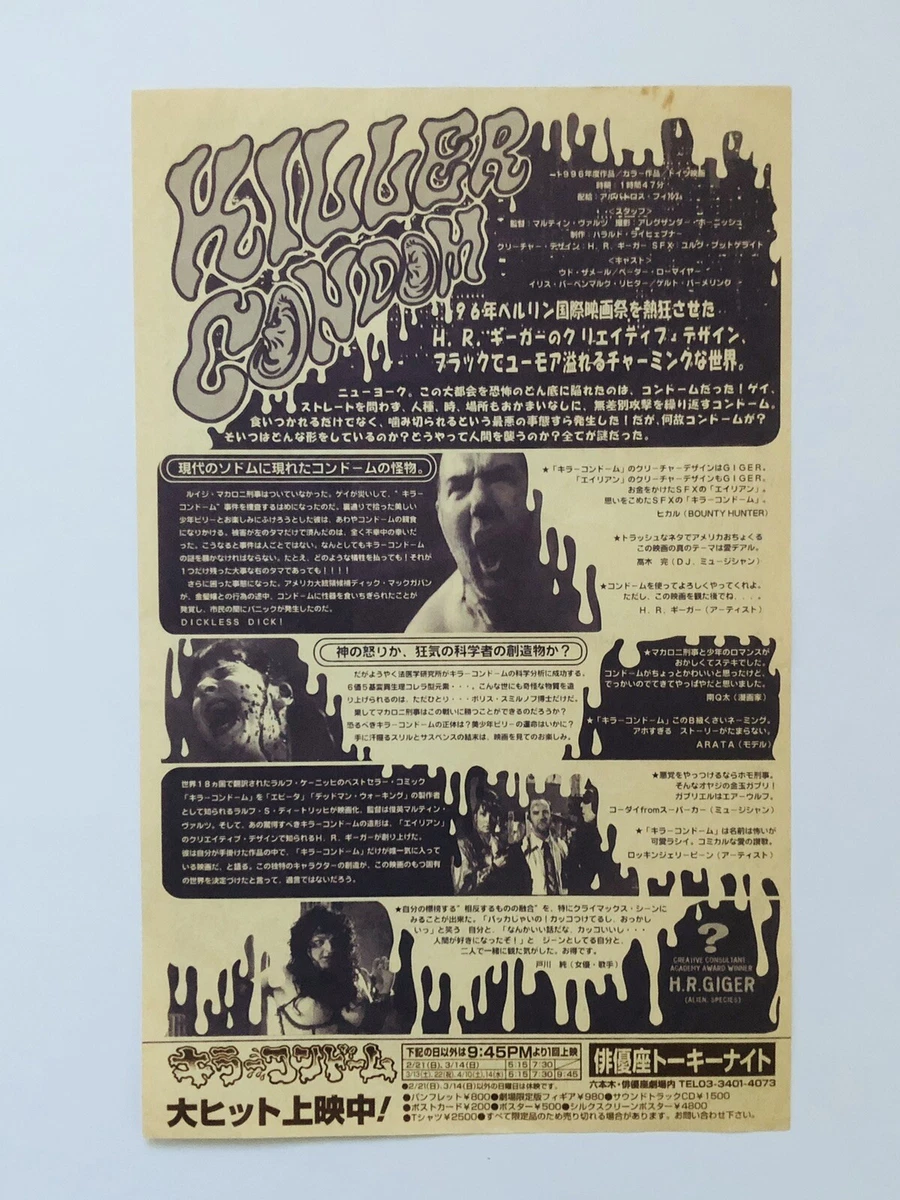 KILLER
CONDOM
1996年度作品/カラー作品/ドイツ映画
時間:1時間47分
配給:アルバトロス・フィルム
<スタッフ>
監督:マルティン・ヴァルツ 撮影:アレグザンダー・ホーニッシュ
制作:ハラルド・ライヒェブナー
クリーチャー・デザイン:H. R. ギーガー SFX:ユルグ・ブットゲライト
<キャスト>
ウド・ザメール/ペーター・ローマイヤー
イリス・バーベンマルク・リヒター/ゲルト・バーメリンク
196年ベルリン国際映画祭を熱狂させた
H. R. ギーガーのクリエイティブ・デザイン、
ブラックでユーモア溢れるチャーミングな世界。
ニューヨーク。この大都会を恐怖のどん底に陥れたのは、コンドームだった!ゲイ、
ストレートを問わず、人種、時、場所もおかまいなしに、無差別攻撃を繰り返すコンドーム。
食いつかれるだけでなく、噛み切られるという最悪の事態すら発生した!だが、何故コンドームが?
そいつはどんな形をしているのか?どうやって人間を襲うのか?全てが謎だった。
現代のソドムに現れたコンドームの怪物。
ルイジ・マカロニ刑事はついていなかった。ゲイが災いして、"キラー
コンドーム"事件を捜査するはめになったのだ。裏通りで拾った美しい
少年ビリーとお楽しみにふけろうとした彼は、あわやコンドームの餌食
になりかける。被害が左のタマだけで済んだのは、全く不幸中の幸いだ
った。こうなると事件は人ごとではない。なんとしてもキラーコンドーム
の謎を暴かなければならない。たとえ、どのような犠牲を払っても!それが
1つだけ残った大事な右のタマであっても!!!!
さらに困った事態になった。アメリカ大統領候補ディック・マックガバン
が、金髪嬢との行為の途中、コンドームに性器を食いちぎられたことが
発覚し、市民の間にパニックが発生したのだ。
DICKLESS DICK!
★「キラーコンドーム」のクリーチャーデザインはGIGER。
「エイリアン」のクリーチャーデザインもGIGER。
お金をかけたSFXの「エイリアン」。
思いをこめたSFXの「キラーコンドーム」。
ヒカル(BOUNTY HUNTER)
★トラッシュなネタでアメリカおちょくる
この映画の真のテーマは愛デアル。
高木 完(DJ、ミュージシャン)
★コンドームを使ってよろしくやってくれよ。
ただし、この映画を観た後でね...。
H. R. ギーガー(アーティスト)
神の怒りか、狂気の科学者の創造物か?
だがようやく法医学研究所がキラーコンドームの科学分析に成功する。
6価5基霊異生理コレラ型元素・・・。こんな世にも奇怪な物質を造
り上げられるのは、ただひとり・・・ボリス・スミルノフ博士だけだ。
果してマカロニ刑事はこの戦いに勝つことができるのだろうか?
恐るべきキラーコンドームの正体は?美少年ビリーの運命はいかに?
手に汗握るスリルとサスペンスの結末は、映画を見てのお楽しみ。
★マカロニ刑事と少年のロマンスが
おかしくてステキでした。
コンドームがちょっとかわいいと思ったけど、
でっかいのでてきてやっぱやだと思いました。
南Q太(漫画家)
★「キラーコンドーム」このB級くさいネーミング。
アホすぎる ストーリーがたまらない。
ARATA(モデル)
世界18ヵ国で翻訳されたラルフ・ケーニッヒのベストセラー・コミック
「キラーコンドーム」を「エビータ」「デッドマン・ウォーキング」の製作者
として知られるラルフ・S・ディートリッヒが映画化、監督は俊英マルティン・
ヴァルツ。そして、あの驚愕すべきキラーコンドームの造形は、「エイリアン」
のクリエイティブ・デザインで知られるH. R. ギーガーが創り上げた。
彼は自分が手掛けた作品の中で、「キラーコンドーム」だけが唯一気に入って
いる映画だ、と語る。この独特のキャラクターの創造が、この映画のもつ固有
の世界を決定づけたと言って、過言ではないだろう。
★悪党をやっつけるならホモ刑事。
そんなオヤジの金玉ガブリ!
ガブリエルはエアーウルフ。
コーダイfromスーパーカー(ミュージシャン)
★「キラーコンドーム」は名前は怖いが
可愛ラシイ。コミカルな愛の讃歌。
ロッキンジェリービーン(アーティスト)
★自分の標榜する"相反するものの融合"を、特にクライマックス・シーンに
みることが出来た。「バッカじゃいの!カッコつけてるし、おっかし
いっ」と笑う 自分と、「なんかいい話だな、カッコいいし・・・
人間が好きになったぞ!」と ジーンとしてる自分と、
二人で一緒に観た気がした。お得です。
戸川 純(女優・歌手)
?
CREATIVE CONSULTANT
ACADEMY AWARD WINNER
H.R.GIGER
(ALIEN, SPECIES)
キラーコンドーム
大ヒット上映中!
下記の日以外は9:45PMより1回上映
2/21(日)、3/14(日) 5:15 7:30
3/13(土)、22(祝)、4/10(土)、14(水) 5:15 7:30 9:45
●2/21(日)、3/14(日)以外の日曜日は休映です。
俳優座トーキーナイト
六本木・俳優座劇場内 TEL03-3401-4073
●パンフレット¥800●劇場限定版フィギア¥980●サウンドトラックCD¥1500
●ポストカード¥200●ポスター¥500●シルクスクリーンポスター¥4800
●Tシャツ¥2500●すべて限定品のため売り切れる場合があります。お問い合わせ下さい。